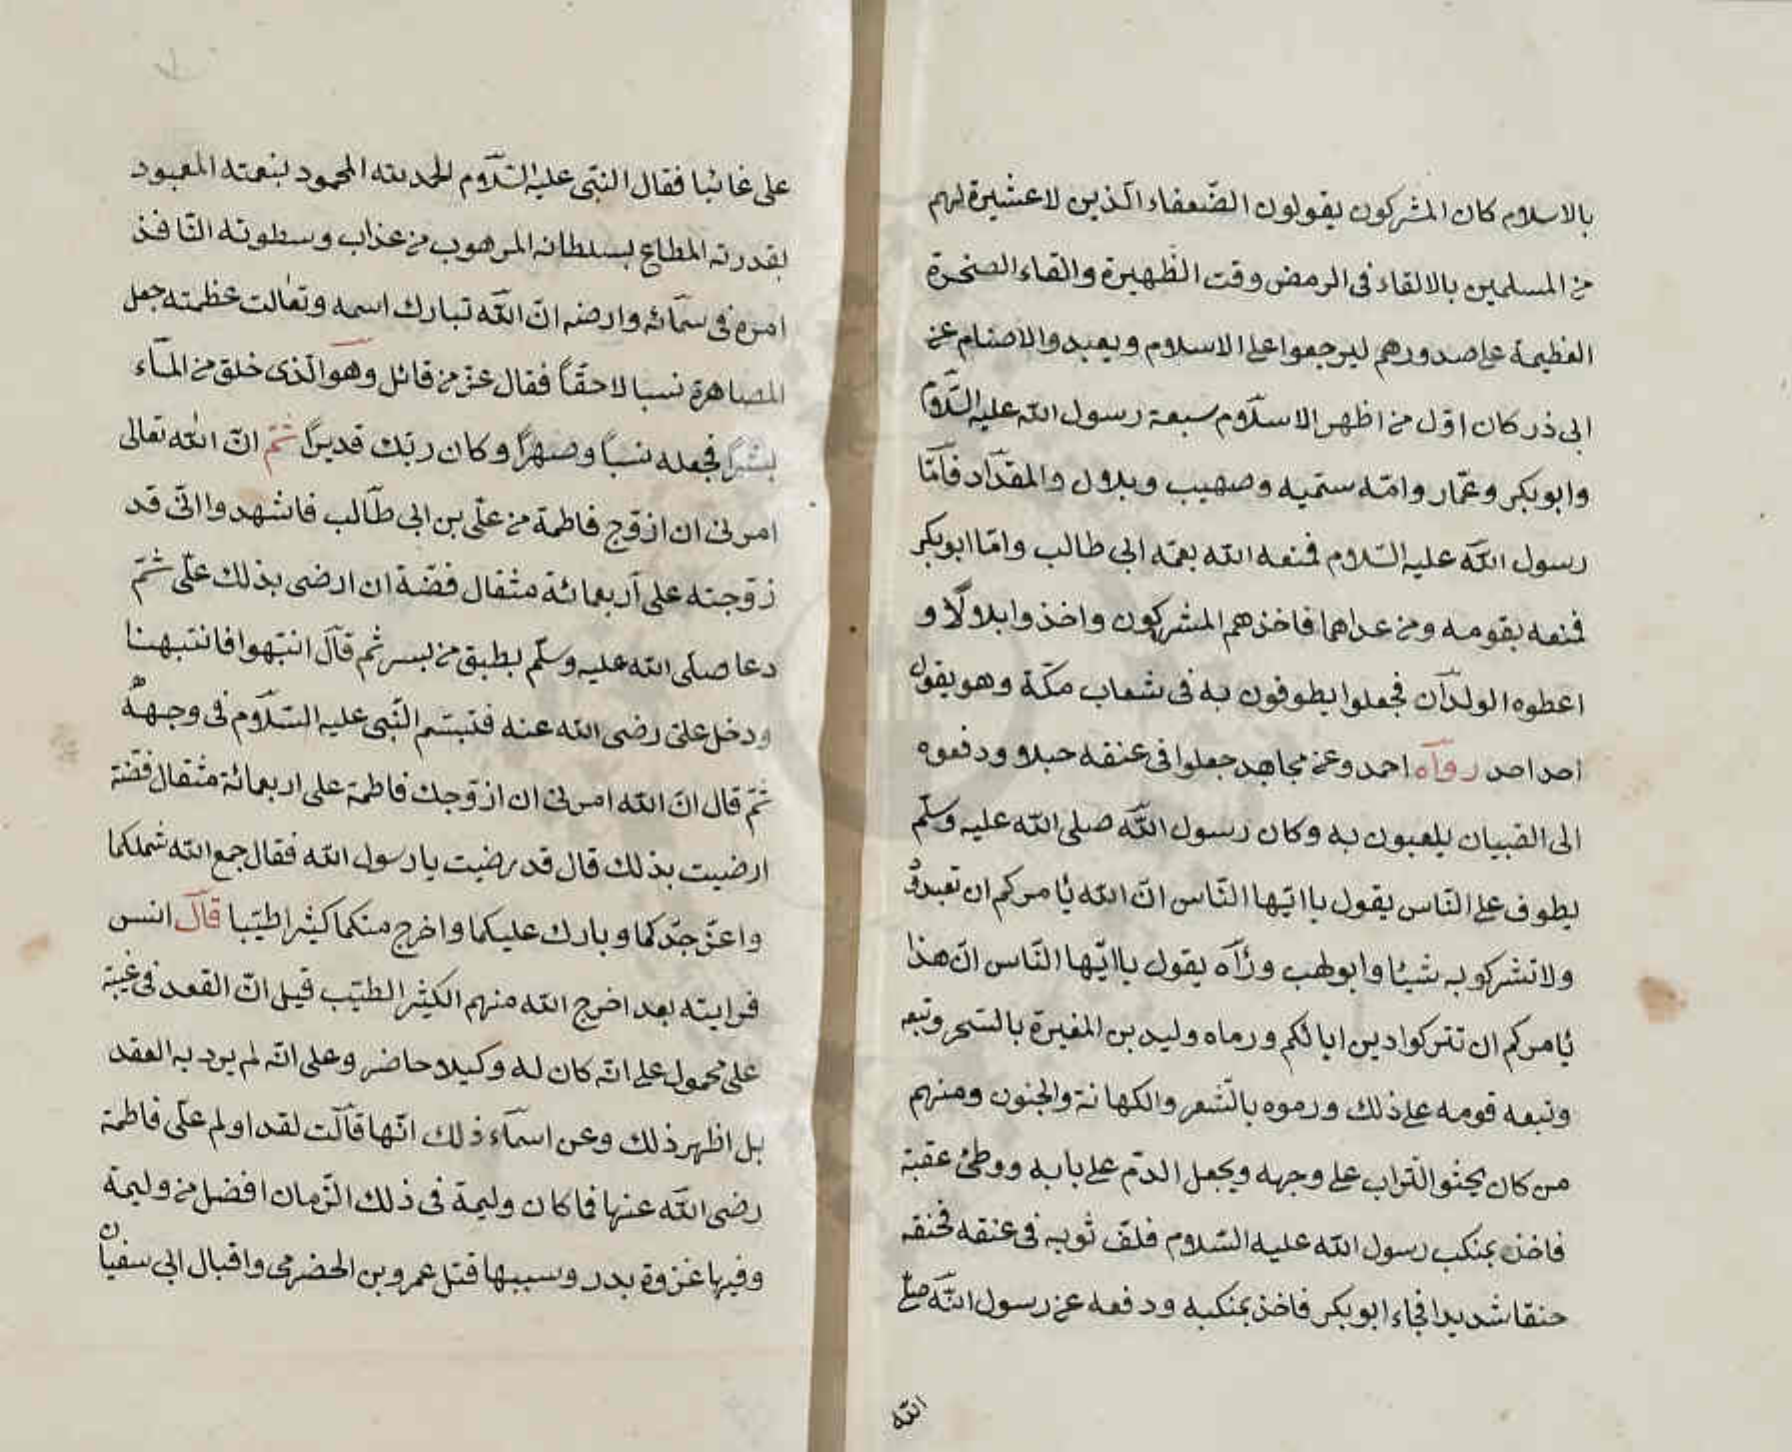 بالاسلام كان المشركون يقولون الضّعفاء الّذين لا عشيرة لهم
من المسلمين بالالقاء فى الرمض وقت الظهيرة والقاء الصخرة
العظيمة على صدورهم ليرجعوا على الاسلام ويعبدوا الاصنام عن
ابى ذر كان اوّل من اظهر الاسلام سبعة رسول الله عليه السّلام
وابوبكر وعمّار وامّه سمّيه وصهيب وبلال والمقداد فامّا
رسول الله عليه السّلام فمنعه الله بعمّه ابى طالب وامّا ابوبكر
فمنعه بقومه ومن عداهما فاخذهم المشركون واخذوا بلالًا و
اعطوه الولدان فجعلوا يطوفون به فى شعاب مكّة وهو يقول
احد احد رواه احمد وعن مجاهد جعلوا فى عنقه حبلا ودفعوه
الى الصّبيان يلعبون به وكان رسول الله صلى الله عليه وسلّم
يطوف على النّاس يقول يا ايّها النّاس انّ الله يأمركم ان تعبدوه
ولا تشركو به شيئا وابو لهب ورآه يقول يا ايّها النّاس انّ هذا
يأمركم ان تتركوا دين ابائكم ورماه وليد بن المغيرة بالسّحر وتبعه
وتبعه قومه على ذلك ورموه بالشّعر والكهانة والجنون ومنهم
من كان يحثو التراب على وجهه ويجعل الدّم على بابه ووطئ عقبة
فاخذ بمنكب رسول الله عليه السّلام فلفّ ثوبه فى عنقه فخنقه
خنقا شديدا فجاء ابوبكر فاخذ بمنكبه ودفعه عن رسول الله صلى
الله
على غائبا فقال النبّى عليه السّلام الحمد لله المحمود بنعمته المعبود
بقدرته المطاع بسلطانه المرهوب من عذاب وسطوته النّافذ
امره فى سمائه وارضه انّ الله تبارك اسمه وتعالت عظمته جعل
المصاهرة نسبا لاحقّاً فقال عزّ من قائل وهو الّذى خلق من الماء
بشراً فجعله نسباً وصهراً وكان ربّك قديراً ثمّ انّ الله تعالى
امرنى ان ازوّج فاطمة من علّى بن ابى طالب فاشهدوا انّى قد
زوّجته على اربعمائة مثقال فضّة ان ارضى بذلك علّى ثمّ
دعا صلّى الله عليه وسلّم بطبق من بسر ثم قال انتبهوا فانتبهنا
ودخل علىّ رضى الله عنه فتبسّم النّبى عليه السّلام فى وجهه
ثمّ قال انّ الله امرنى ان ازوّجك فاطمة على اربعمائة مثقال فضّة
ارضيت بذلك قال قد رضيت يا رسول الله فقال جمع الله شملكما
واعزّ جدّكما وبارك عليكما واخرج منكما كثيرا طيّبا قال انس
فرايته بعد اخرج الله منهم الكثير الطيّب قيل انّ القعد فى غيبة
علىّ محمول على انّه كان له وكيلا حاضر وعلى انّه لم يرد به العقد
بل اظهر ذلك وعن اسماء ذلك انّها قالت لقد اولم علّى فاطمة
رضى الله عنها فما كان وليمة فى ذلك الزّمان افضل من وليمة
وفيها غزوة بدر وسببها قتل عمرو بن الحضرمى واقبال ابى سفيان